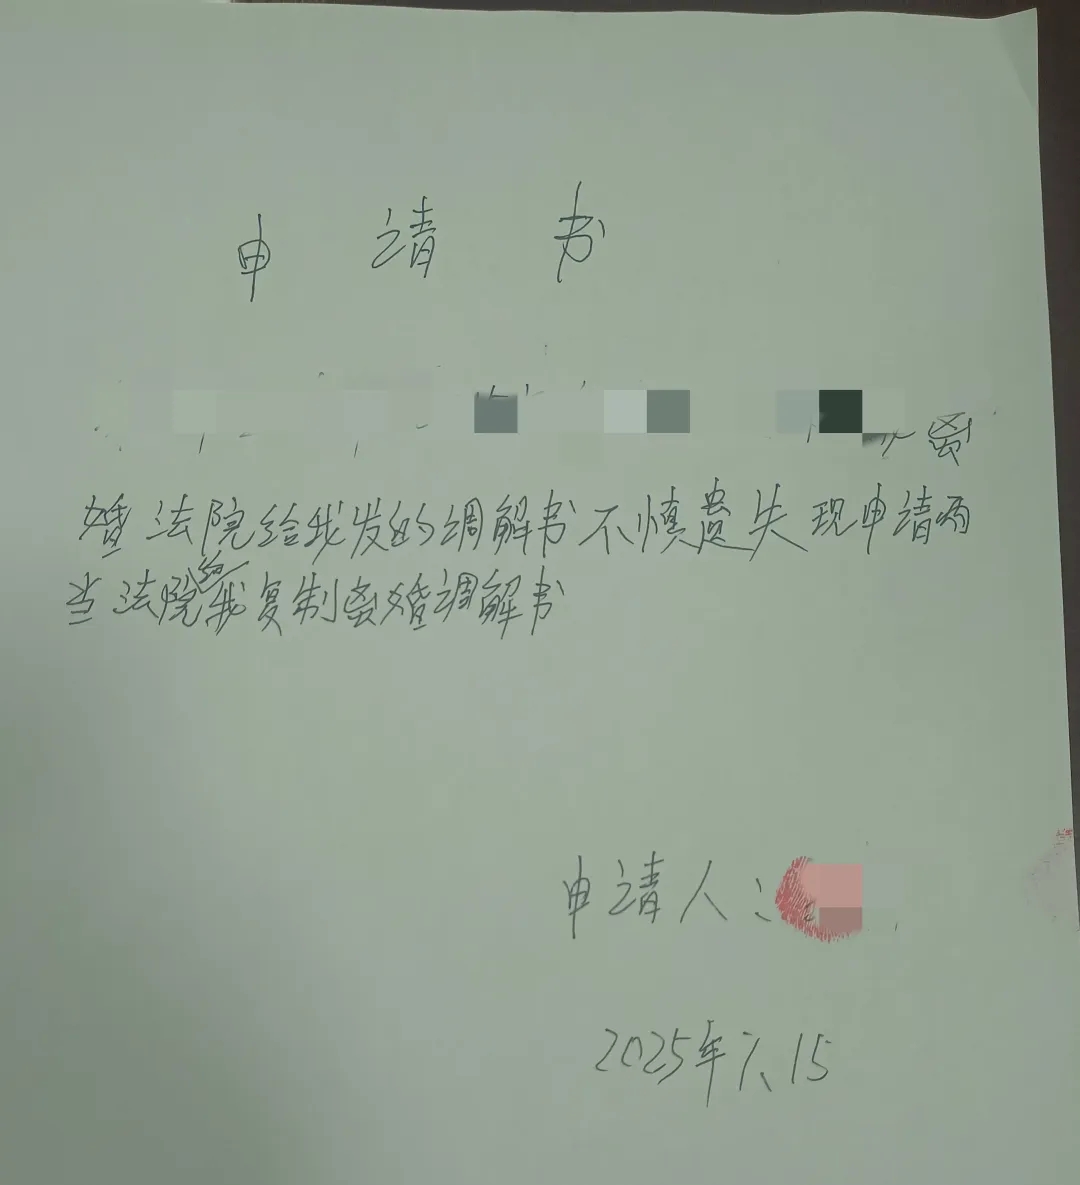 申请书
离
婚法院给我发的调解书不慎遗失现申请两
当法院给我复制离婚调解书
申请人:
2025年六.15